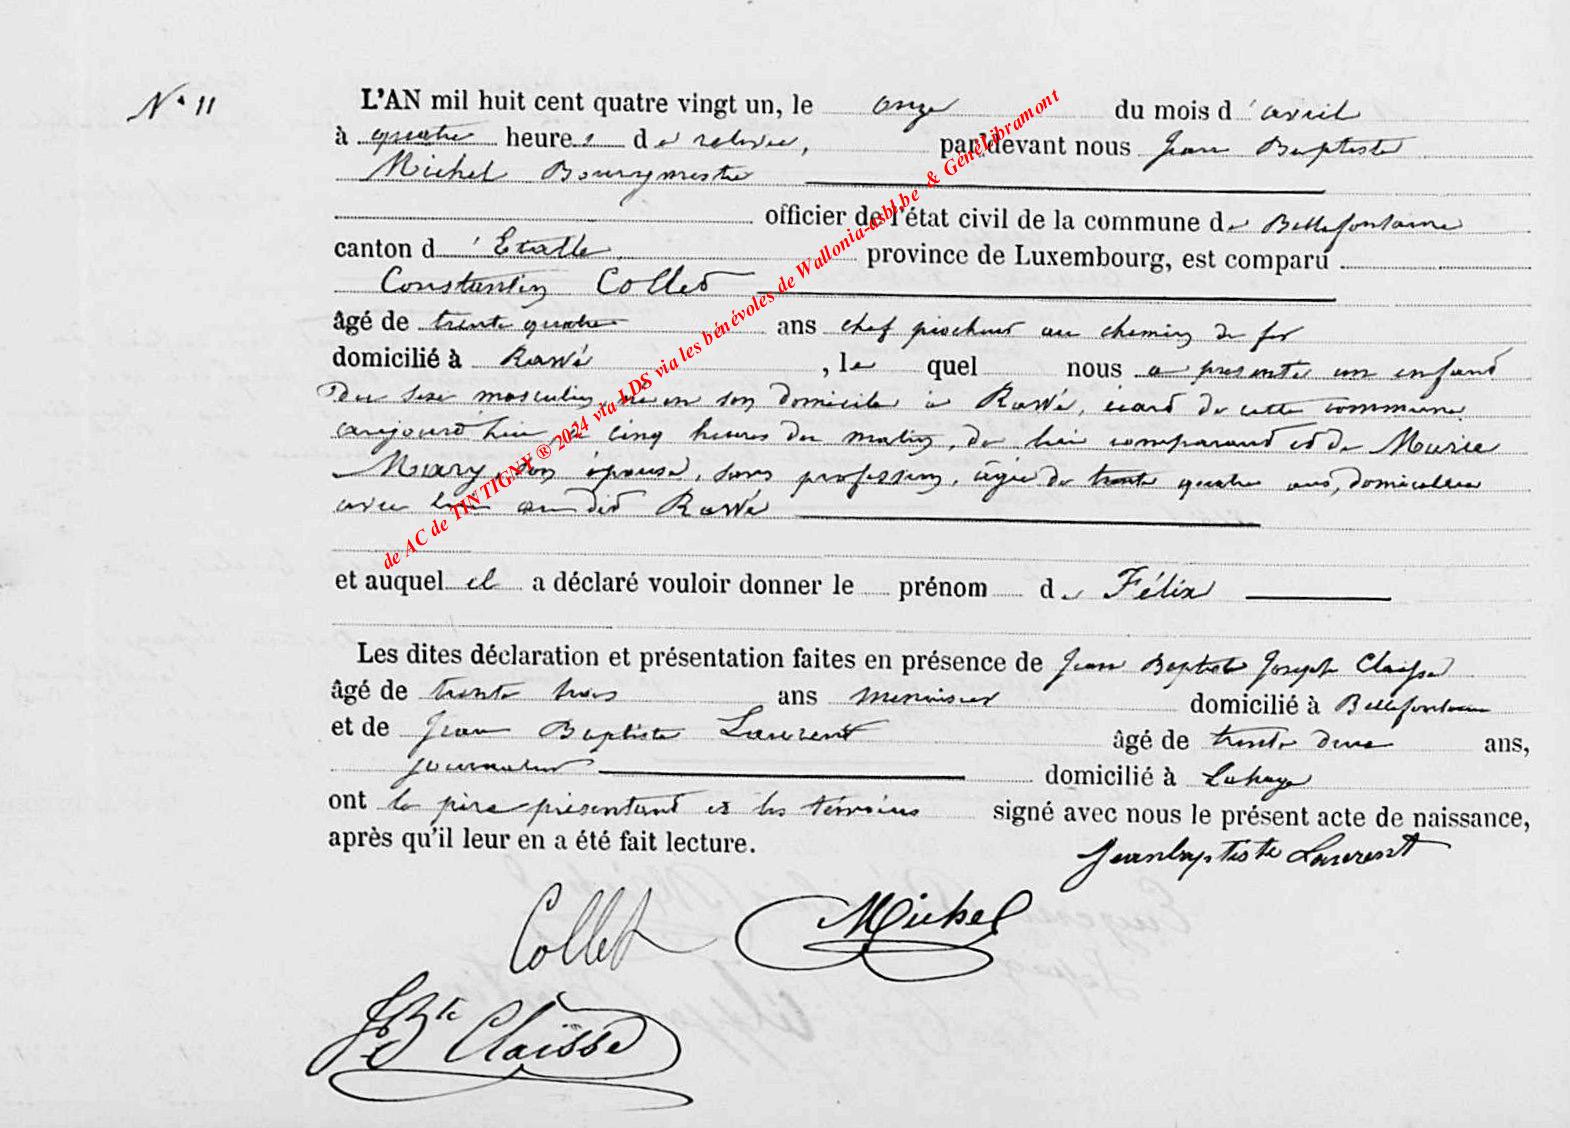 N° 11
L'AN mil huit cent quatre vingt un, le onze du mois d'avril
à quatre heures de relevée, par devant nous Jean Baptiste
Michel Bourgmestre
officier de l'état civil de la commune de Bellefontaine
canton d'Etalle province de Luxembourg, est comparu
Constantin Collet
âgé de trente quatre ans chef piocheur au chemin de fer
domicilié à Rawé, lequel nous a présenté un enfant
du sexe masculin, né en son domicile à Rawé, écart de cette commune
aujourd'hui à cinq heures du matin, de lui comparant et de Marie
Mary, son épouse, sans profession, âgée de trente quatre ans, domiciliée
avec lui au dit Rawé
et auquel il a déclaré vouloir donner le prénom de Félix
Les dites déclaration et présentation faites en présence de Jean Baptiste Joseph Claisse
âgé de trente trois ans menuisier domicilié à Bellefontaine
et de Jean Baptiste Laurent âgé de trente deux ans,
journalier domicilié à Lahage
ont le père présentant et les témoins signé avec nous le présent acte de naissance,
après qu'il leur en a été fait lecture.
Jeanbaptiste Laurent
Collet Michel
JBte Claïsse
de AC de TINTIGNY ® 2024 via LDS via les bénévoles de Wallonia-asbl.be & GénéLibramont